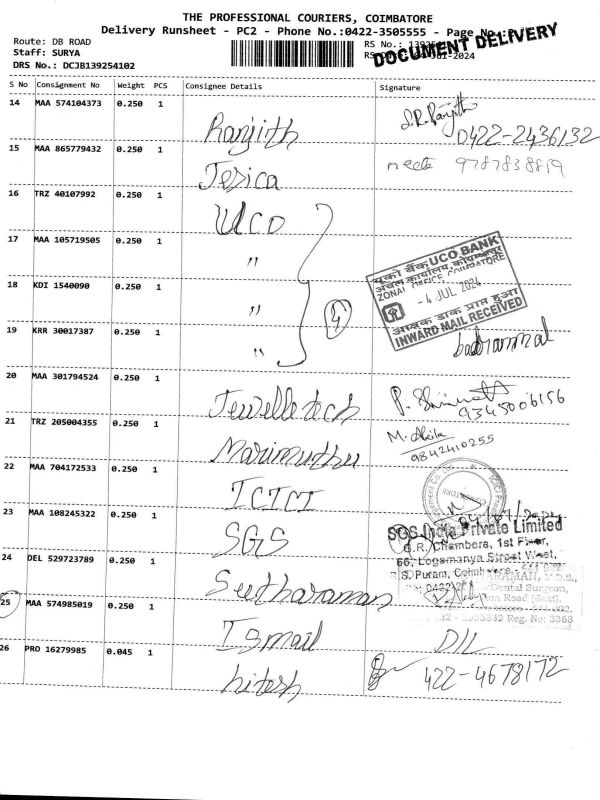 THE PROFESSIONAL COURIERS, COIMBATORE
Delivery Runsheet - PC2 - Phone No.:0422-3505555 - Page No.:
Route: DB ROAD
Staff: SURYA
DRS No.: DCJB139254102
RS No.:
DOCUMENT DELIVERY
S No Consignment No Weight PCS Consignee Details Signature
14 MAA 574104373 0.250 1 Ranjith 0422-2436132
15 MAA 865779432 0.250 1 Jesica 9787838819
16 TRZ 40107992 0.250 1 UCO
17 MAA 105719505 0.250 1 "
18 KDI 1540090 0.250 1 " 4
19 KRR 30017387 0.250 1 "
यूको बैंक UCO BANK
अंचल कार्यालय कोयम्बतूर
ZONAL OFFICE COIMBATORE
- 4 JUL 2024
आवक डाक प्राप्त हुआ
INWARD MAIL RECEIVED
20 MAA 301794524 0.250 1 Jewelletech 9345006156
21 TRZ 205004355 0.250 1 Marimuthu M. Akila 9842410255
22 MAA 704172533 0.250 1 ICICI
23 MAA 108245322 0.250 1 SGS
SGS India Private Limited
G.R. Chambers, 1st Floor,
66, Logamanya Street West,
R.S. Puram,
24 DEL 529723789 0.250 1 Seetharaman
Dental Surgeon,
Reg. No: 3368
25 MAA 574985019 0.250 1 Ismail D/L
26 PRO 16279985 0.045 1 hitesh 422-4678172